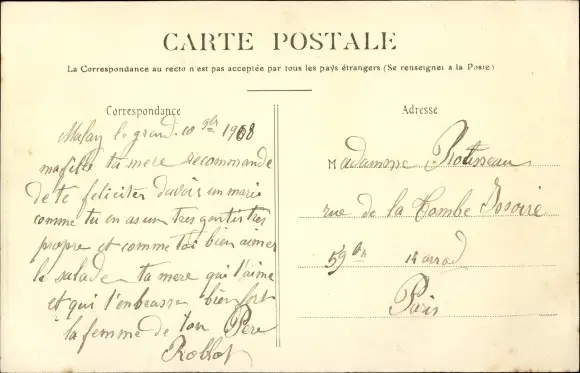 CARTE POSTALE
La Correspondance au recto n'est pas acceptée par tous les pays étrangers (Se renseigner à la Poste)
Correspondance
Adresse
Malay le grand. 10 9bre 1908
ma fille ta mere recommande
de te feliciter davoir un marie
comme tu en as un tres gentis tres
propre et comme toi bien aimer
la salade ta mere qui t'aime
et qui t'enbrasse bien fort
la femme de ton Père
Roblot
Madamme Rotineau
rue de la Tombe Issoire
59 bis 14 arrod
Paris